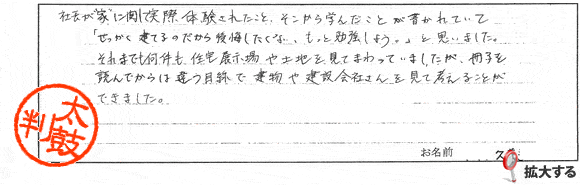 社長が家に関して実際体験されたこと、そこから学んだことが書かれていて
「せっかく建てるのだから後悔したくない、もっと勉強しよう。」と思いました。
それまでも何件も住宅展示場や土地を見てまわっていましたが、冊子を
読んでからは違う目線で建物や建設会社さんを見て考えることが
できました。
太鼓判
お名前
拡大する